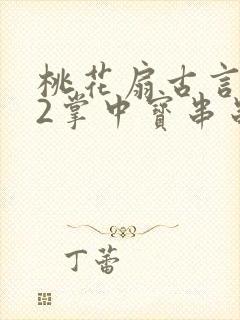 桃花扇古言
2掌中寶串
丁蕾